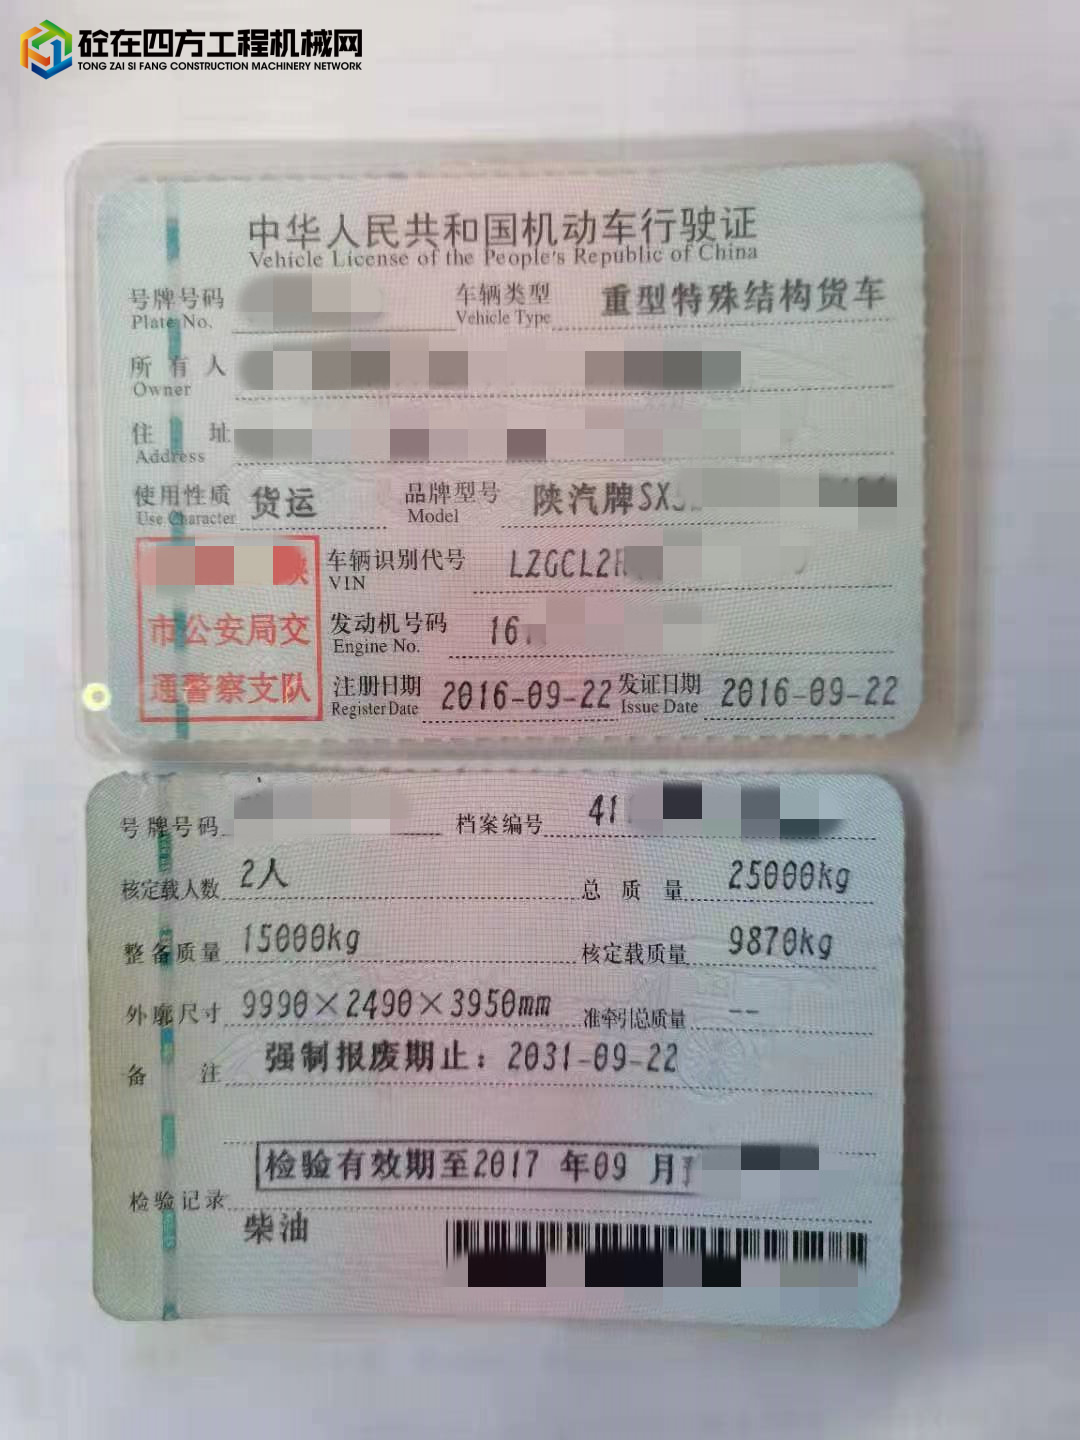 砼在四方工程机械网
TONG ZAI SI FANG CONSTRUCTION MACHINERY NETWORK
中华人民共和国机动车行驶证
Vehicle License of the People's Republic of China
号牌号码 车辆类型 重型特殊结构货车
Plate No. Vehicle Type
所有人
Owner
住址
Address
使用性质 货运 品牌型号 陕汽牌SX
Use Character Model
车辆识别代号 LZGCL2
VIN
市公安局交 发动机号码 16
Engine No.
通警察支队 注册日期 2016-09-22 发证日期 2016-09-22
Register Date Issue Date
号牌号码 档案编号 41
核定载人数 2人 总质量 25000kg
整备质量 15000kg 核定载质量 9870kg
外廓尺寸 9990×2490×3950mm 准牵引总质量 --
备注 强制报废期止：2031-09-22
检验有效期至2017 年09 月
检验记录
柴油